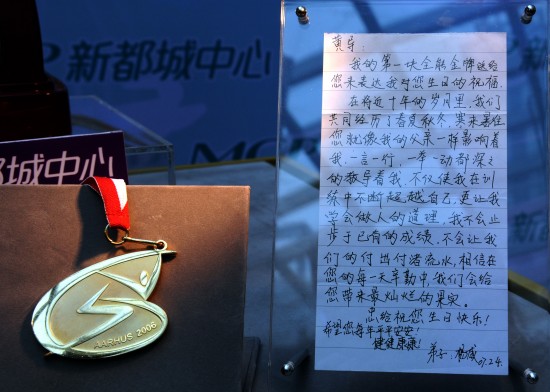 新都城中心
新都城中心
都城中心
AARHUS 2006
黄导:
我的第一块全能金牌送给
您来表达我对您生日的祝福。
在将近十年的岁月里,我们
共同经历了春夏秋冬,寒来暑往
您就像我的父亲一样影响着
我,一言一行,一举一动都深深
的教导着我,不仅使我在训
练中不断超越自己,更让我
学会做人的道理。我不会止
步于已有的成绩,不会让我
们的付出付诸流水,相信在
您的每一天辛勤中,我们会给
您带来最灿烂的果实。
恐给祝您生日快乐!
希望您每年平平安安!
健健康康!
弟子:杨威
07.24.